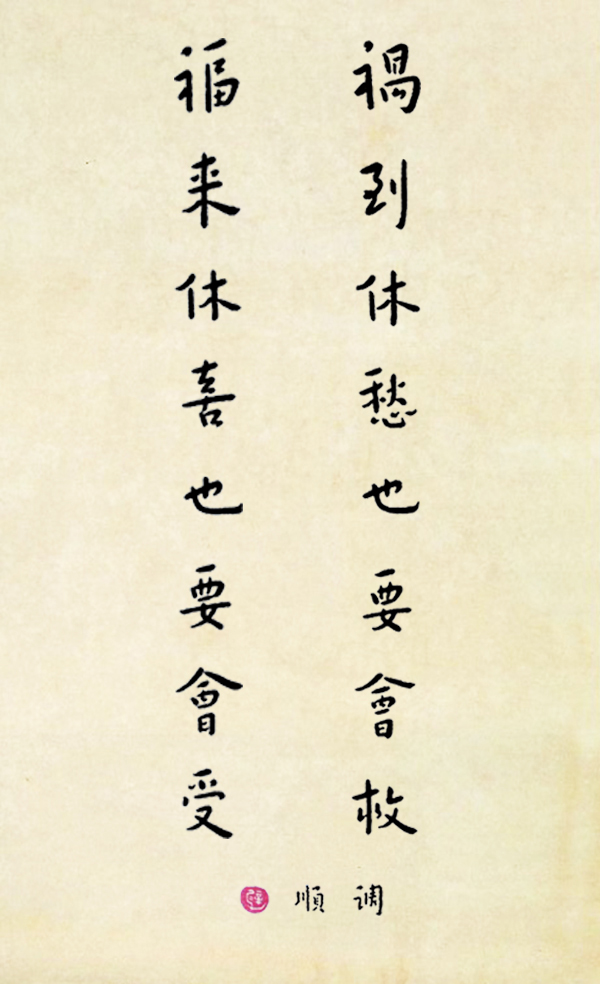 禍到休愁也要會救
福来休喜也要會受
调順